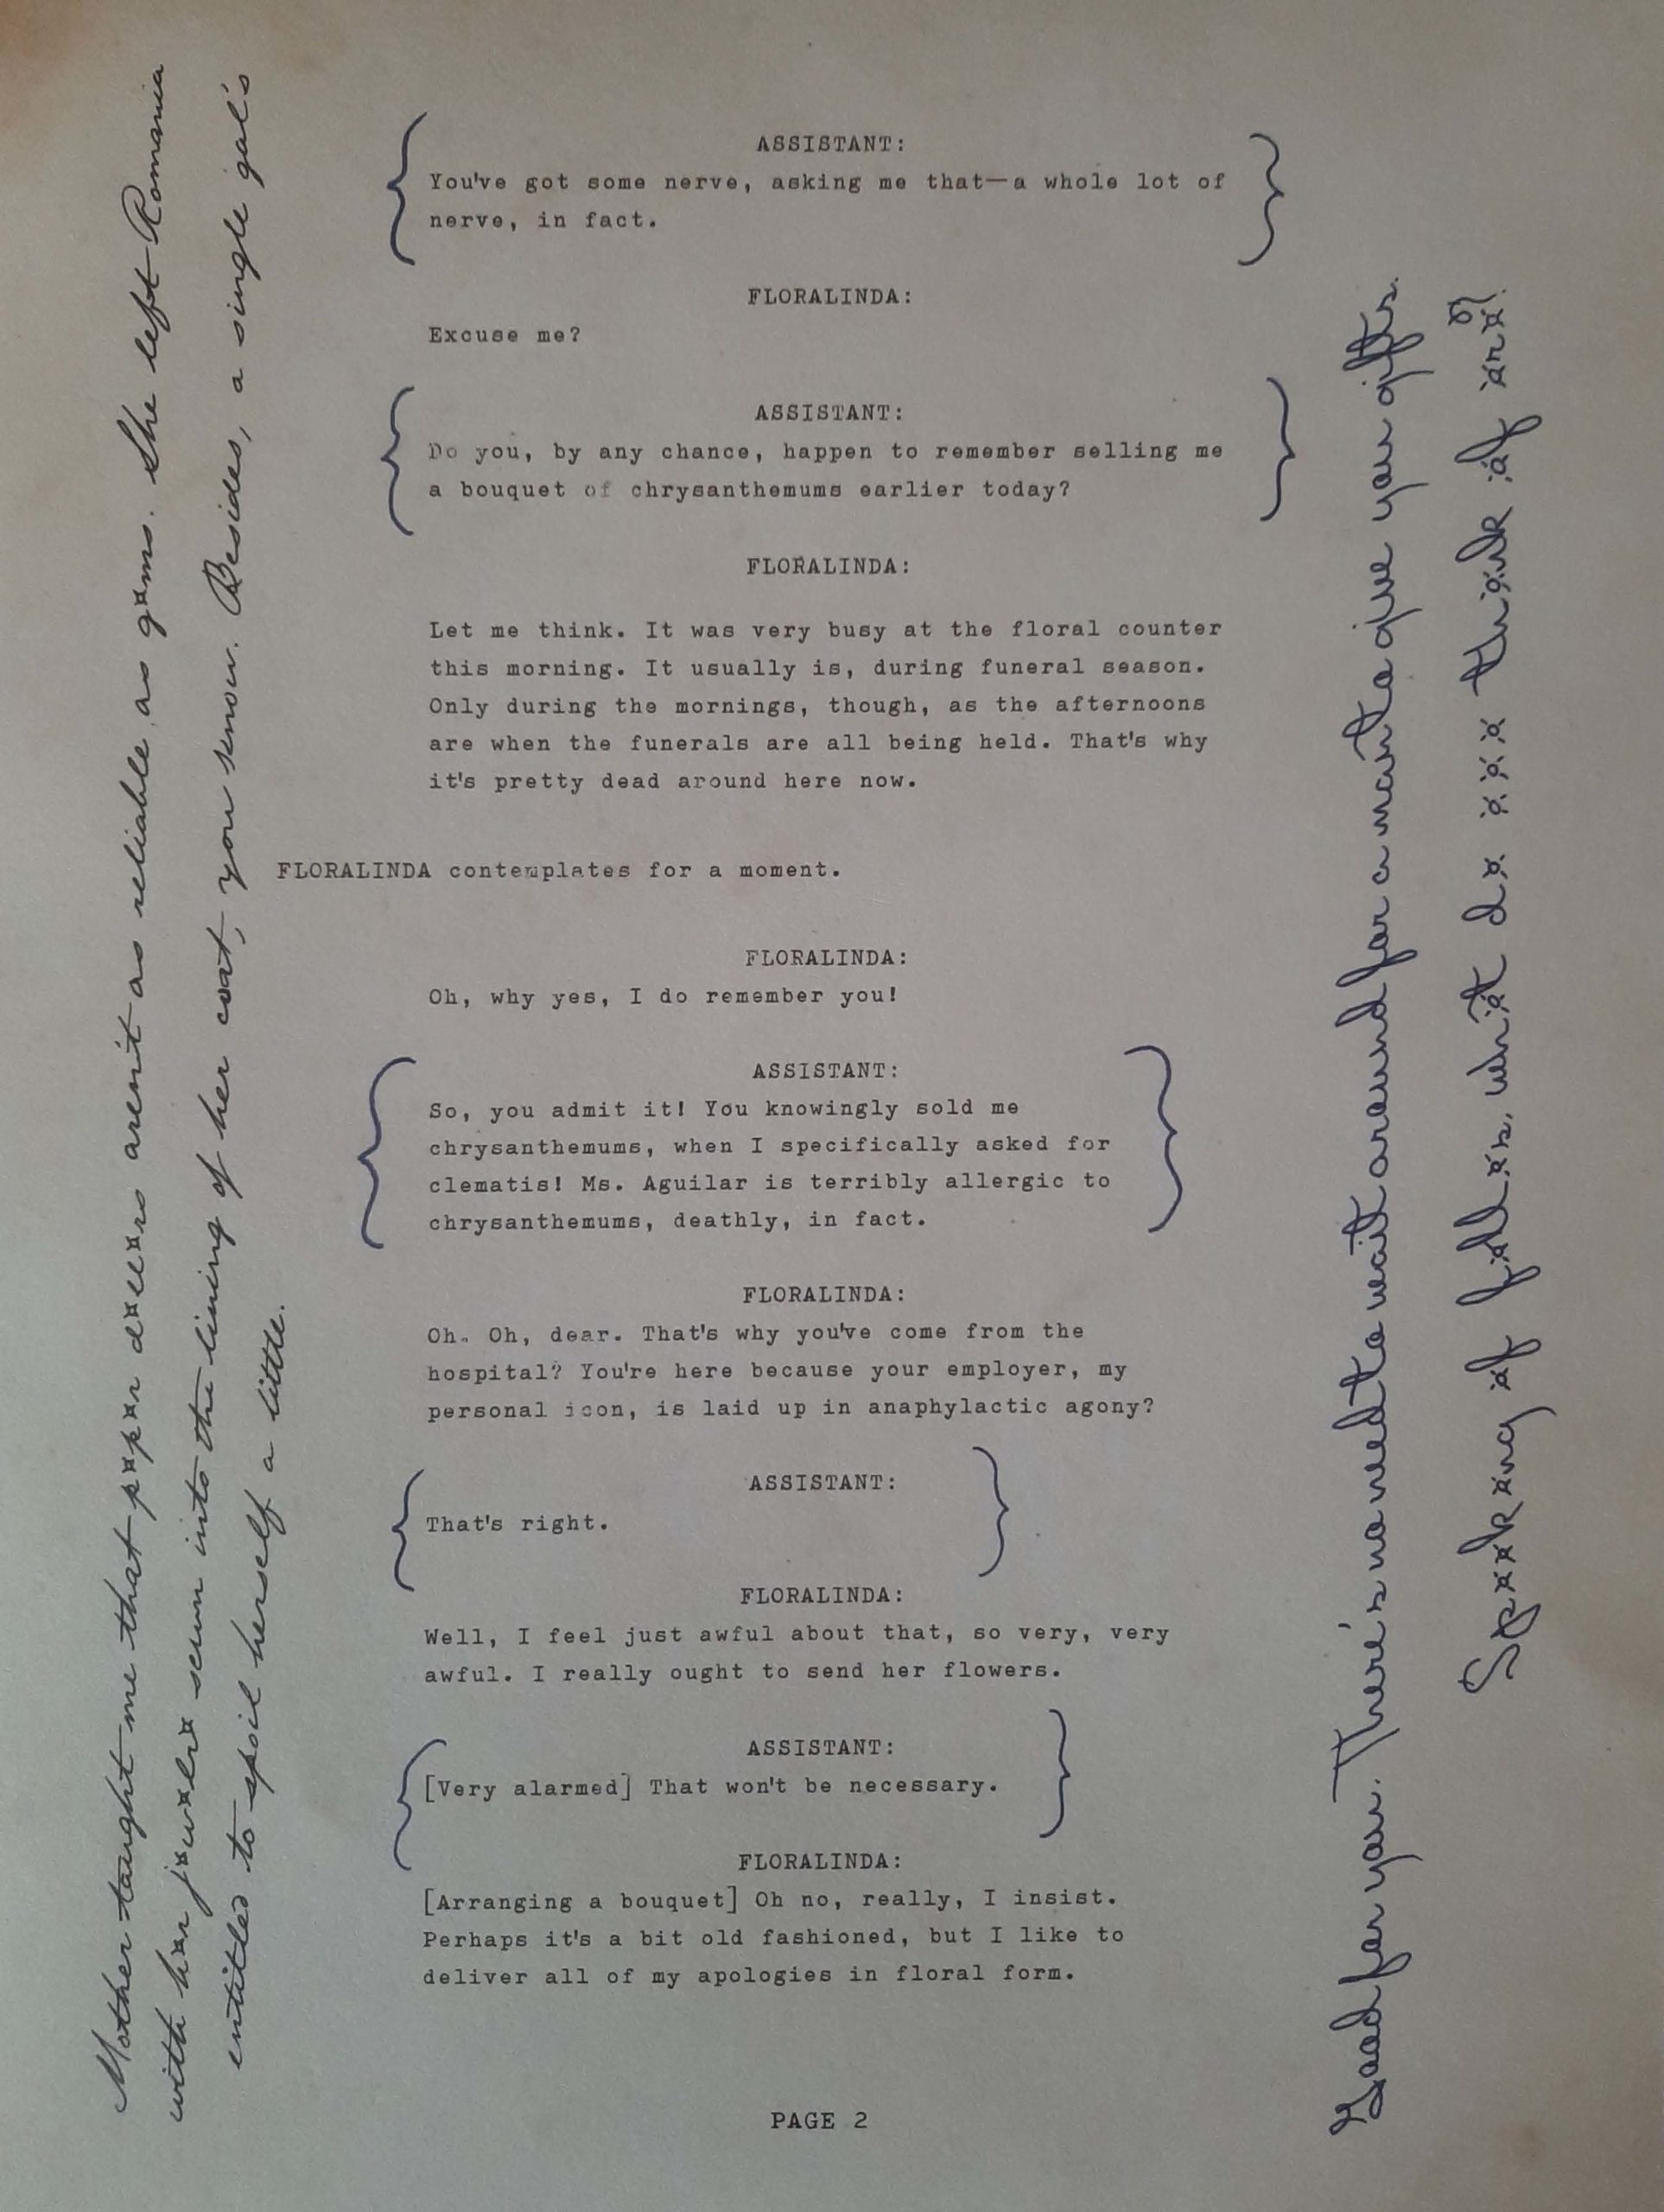 Mother taught me that p¤p¤r d¤ll¤rs aren't as reliable as g¤ms. She left Romania
with h¤r j¤w¤lr¤ sewn into the lining of her coat, you know. Besides, a single gal's
entitled to spoil herself a little.
ASSISTANT:
You've got some nerve, asking me that—a whole lot of
nerve, in fact.
FLORALINDA:
Excuse me?
ASSISTANT:
Do you, by any chance, happen to remember selling me
a bouquet of chrysanthemums earlier today?
FLORALINDA:
Let me think. It was very busy at the floral counter
this morning. It usually is, during funeral season.
Only during the mornings, though, as the afternoons
are when the funerals are all being held. That's why
it's pretty dead around here now.
FLORALINDA contemplates for a moment.
FLORALINDA:
Oh, why yes, I do remember you!
ASSISTANT:
So, you admit it! You knowingly sold me
chrysanthemums, when I specifically asked for
clematis! Ms. Aguilar is terribly allergic to
chrysanthemums, deathly, in fact.
FLORALINDA:
Oh. Oh, dear. That's why you've come from the
hospital? You're here because your employer, my
personal icon, is laid up in anaphylactic agony?
ASSISTANT:
That's right.
FLORALINDA:
Well, I feel just awful about that, so very, very
awful. I really ought to send her flowers.
ASSISTANT:
[Very alarmed] That won't be necessary.
FLORALINDA:
[Arranging a bouquet] Oh no, really, I insist.
Perhaps it's a bit old fashioned, but I like to
deliver all of my apologies in floral form.
PAGE 2
Good for you. There's no need to wait around for a man to give you gifts.
Sp¤¤k¤ng ¤f f¤ll¤s, wh¤t d¤ ¤¤¤ th¤nk ¤f ¤r¤?